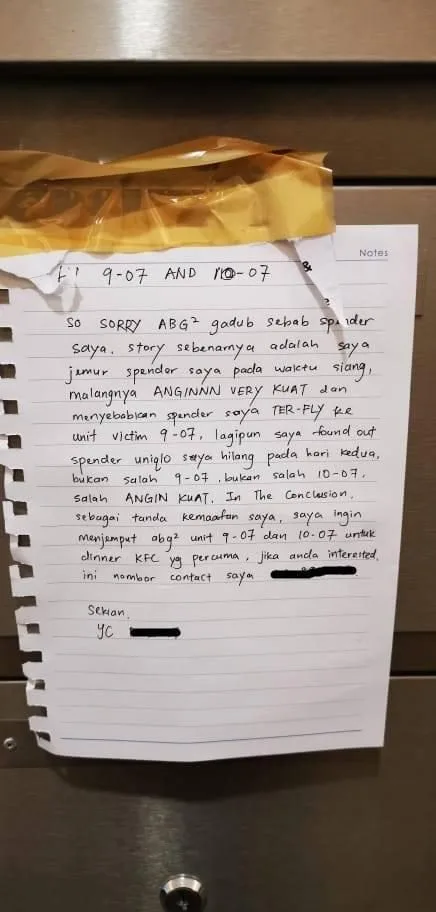 Notes
9-07 AND 10-07 &
SO SORRY ABG² gadub sebab spender
saya. story sebenarnya adalah saya
jemur spender saya pada waktu siang,
malangnya ANGINNN VERY KUAT dan
menyebabkan spender saya TER-FLY ke
unit victim 9-07, lagipun saya found out
spender uniqlo saya hilang pada hari kedua,
bukan salah 9-07, bukan salah 10-07,
salah ANGIN KUAT. In The Conclusion,
sebagai tanda kemaafan saya, saya ingin
menjemput abg² unit 9-07 dan 10-07 untuk
dinner KFC yg percuma, jika anda interested,
ini nombor contact saya
Sekian,
YC